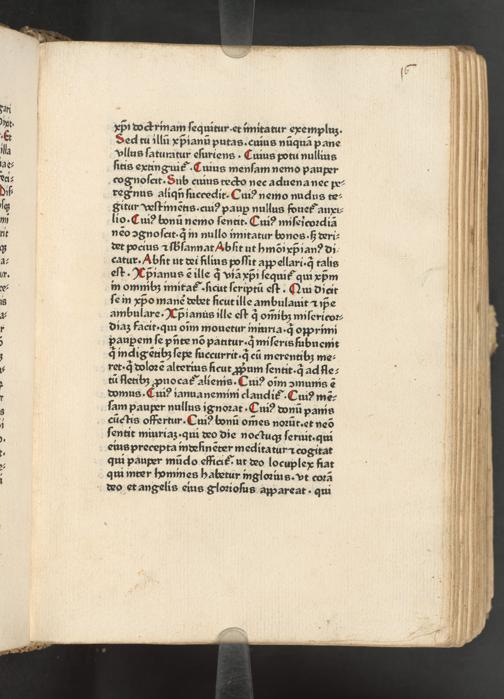 16
xp̄i doctrinam sequitur · et imitatur exemplū.
Sed tu illū xp̄ianū putas · cuius nūqua pane
vllus saturatur esuriens . Cuius potu nullius
sitis extinguit᷑ . Cuius mensam nemo pauper
cognoscit . Sub cuius tecto nec aduena nec pe-
regrinus aliqn̄ succedit . Cuiꝰ nemo nudus te-
gitur vestimētis . cuiꝰ paup̲ nullus fouet᷑ auxi-
lio . Cuiꝰ bonū nemo sentit . Cuiꝰ misericordiā
nēo ꝯgnoscit . q̄ in nullo imitatur bonos . sꝫ deri-
det pocius ⁊ sb̄sannat Absit ut hmōi xp̄ianꝰ di-
catur . Absit ut dei filius possit appellari . q̄ talis
est . Xp̄ianus ē ille q̄ viā xp̄i sequit᷑ qui xp̄m
in omnibꝫ imitat᷑ . sicut scriptū est . Qui dicit
se in xp̄o manē debet sicut ille ambulauit ⁊ ip̄e
ambulare . Xp̄ianus ille est q̄ om̄ibꝫ misericor-
diaꝫ facit . qui oīm mouetur iniuria . q̄ opprimi
paupem se p̄nte nō patitur . q̄ miseris subuenit
q̄ indigētibꝫ sepe succurrit . q̄ cū merentibꝫ me-
ret . q̄ dolorē alterius sicut ꝓpum sentit . q̄ ad fle-
tū fletibꝫ ꝓuocat᷑ alienis . Cuiꝰ oīm ꝯmunis ē
domus . Cuiꝰ ianua nemini claudit᷑ . Cuiꝰ mē-
sam pauper nullus ignorat . Cuiꝰ bonū panis
cūctis offertur . Cuiꝰ bonū om̄es norūt . et neō
sentit iniuriaꝫ . qui deo die noctuqꝫ seruit . qui
eius precepta indefinēter meditatur ⁊ cogitat
qui pauper mūdo efficit᷑ . ut deo locuplex fiat
qui inter homines habetur inglorius . vt corā
deo et angelis eius gloriosus appareat . qui